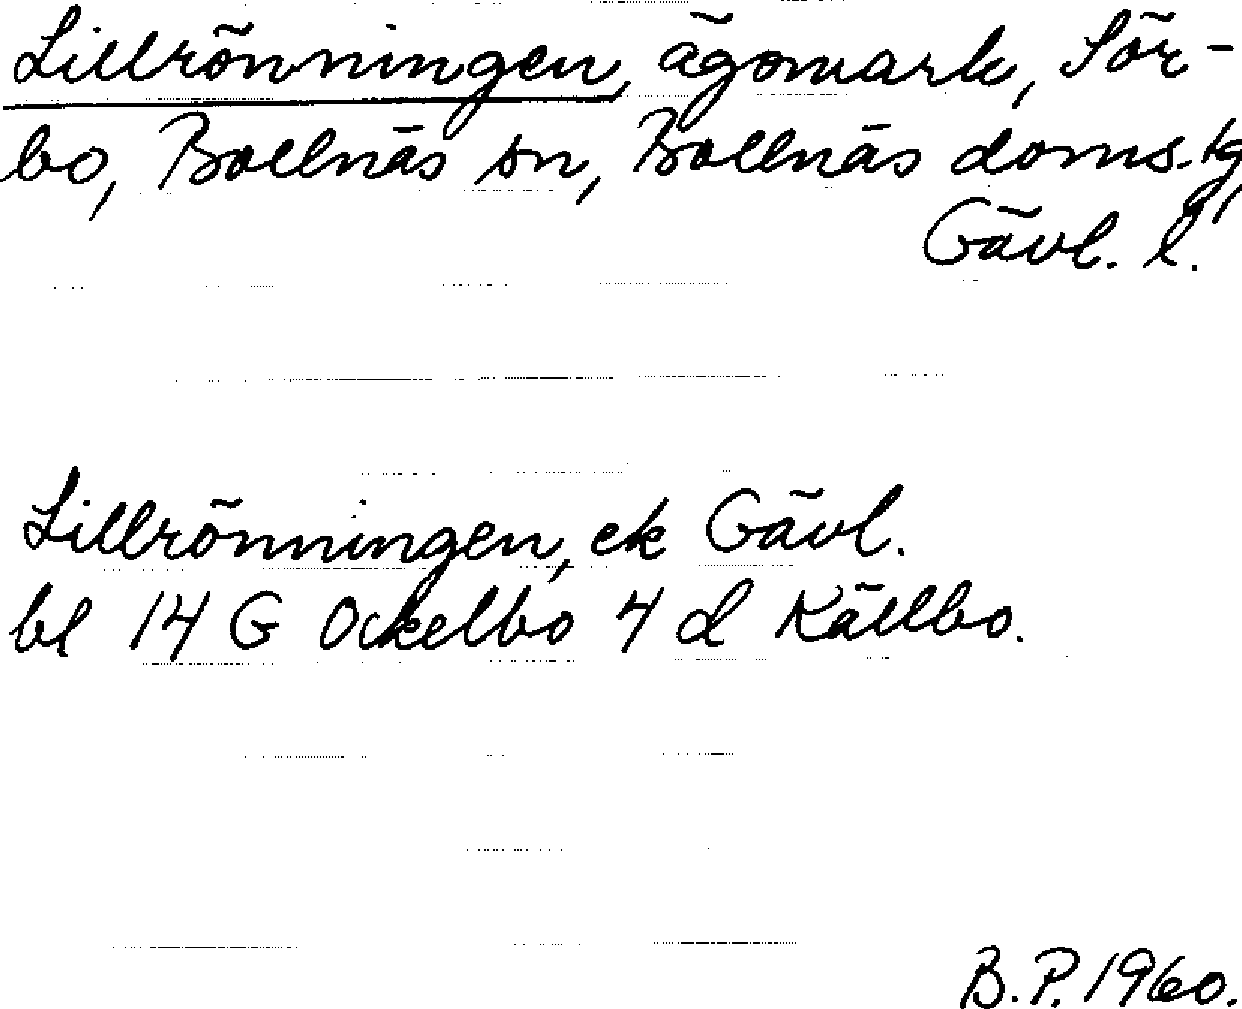 Lillrönningen, ägomark, Sör-
bo, Bollnäs sn, Bollnäs doms.tg,
Gävl. l.
Lillrönningen, ek Gävl.
bl 14 G Ockelbo 4 d Källbo.
B.P. 1960.